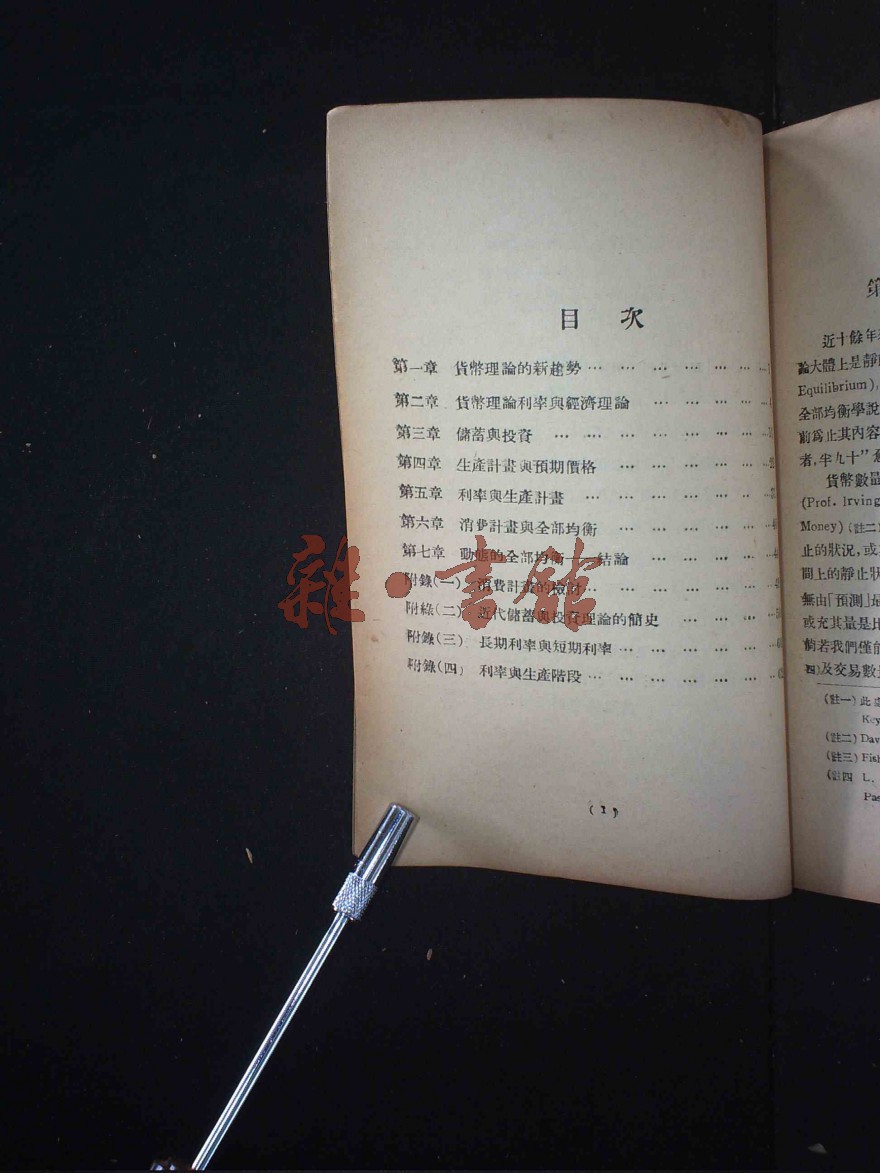 目 次
第一章 貨幣理論的新趨勢 … … … … … … …
第二章 貨幣理論利率與經濟理論 … … … … …
第三章 儲蓄與投資 … … … … … … … …
第四章 生產計畫與預期價格 … … … … … …
第五章 利率與生產計畫 … … … … … … …
第六章 消費計畫與全部均衡 … … … … … …
第七章 動態的全部均衡——結論 … … … …
附錄(一) 消費計畫的檢討… … … … … … …
附錄(二) 近代儲蓄與投資理論的簡史 … … … …
附錄(三) 長期利率與短期利率… … … … … …
附錄(四) 利率與生產階段… … … … … … …
(1)
雜·書館
第
近十餘年
論大體上是靜
Equilibrium),
全部均衡學說
前為止其內容
者,半九十”
貨幣數量
(Prof. Irving
Money)(註二
止的狀況,或
間上的靜止狀
無由「預測」
或充其量是比
倘若我們僅
四)及交易數
(註一)此
Key
(註二)Dav
(註三)Fish
(註四 L.
Pas